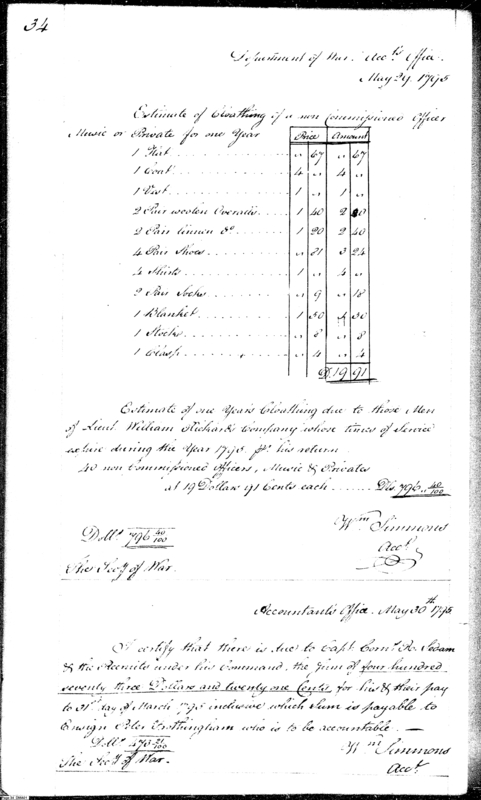 34
Department of War. Acc.ts Office.
May 29. 1795
Estimate of Cloathing of a non Commissioned Officer
Music or Private for one Year
Price Amount
1 Hat . . . . . . . . . . . . " 67 " 67
1 Coat . . . . . . . . . . . . 4 " 4 "
1 Vest . . . . . . . . . . . . 1 " 1 "
2 Pair woolen Overalls . . . . 1 40 2 80
2 Pair linnen do . . . . . . . 1 20 2 40
4 Pair Shoes . . . . . . . . . " 81 3 24
4 Shirts . . . . . . . . . . . 1 " 4 "
2 Pair Socks . . . . . . . . . " 9 " 18
1 Blanket . . . . . . . . . . 1 30 1 30
1 Stock . . . . . . . . . . . " 8 " 8
1 Clasp . . . . . . . . . . . " 4 " 4
D. 19 91
Estimate of one Years Cloathing due to those Men
of Lieut. William Rickards Company whose times of Service
expire during the Year 1795 pr. his return
40 non Commissioned Officers, Music & Privates
at 19 Dollars 91 Cents each . . . . . . . Dls 796 .. 40/100
Wm Simmons
Acct.
Dolls. 796 40/100
The Secy of War.
Accountants Office. May 30th 1795
I certify that there is due to Capt. Corns. R. Sedam
& the Recruits under his Command, the sum of four hundred
seventy three Dollars and twenty one Cents, for his & their pay
to 31st day of March 1795 inclusive which sum is payable to
Ensign Peter Frothingham who is to be accountable. —
Dolls. 473 21/100
Wm Simmons
The Secy of War.
Acct.